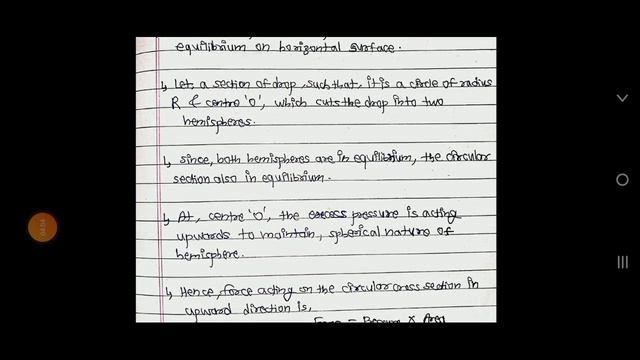 equilibrium on horizontal surface.
↳ Let, a section of drop, such that, it is a circle of radius
R & centre 'O', which cuts the drop into two
hemispheres.
↳ Since, both hemispheres are in equilibrium, the circular
section also in equilibrium.
↳ At, centre 'O', the excess pressure is acting
upwards to maintain, spherical nature of
hemisphere.
↳ Hence, force acting on the circular cross section in
upward direction is,